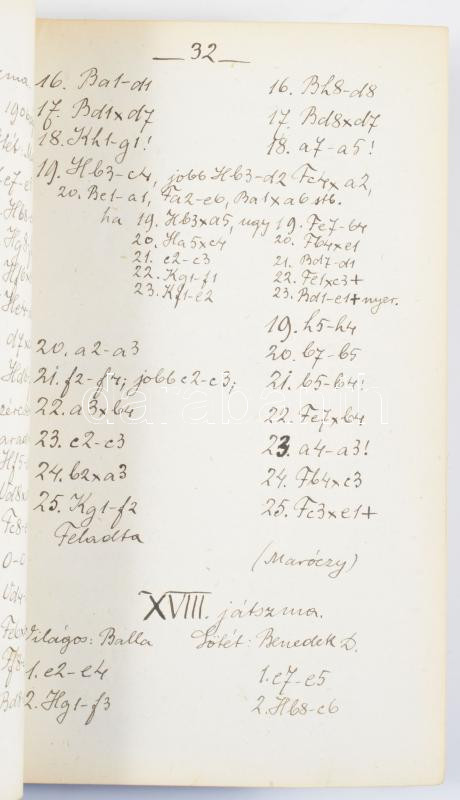 32
16. Ba1-d1 16. Bh8-d8
17. Bd1xd7 17. Bd8xd7
18. Kh1-g1! 18. a7-a5!
19. Hb3-c4, jobb Hb3-d2 Fc4xa2,
20. Be1-a1, Fa2-e6, Ba1xa6 stb.
ha 19. Hb3xa5, ugy 19. Fc7-b4
20. Ha5xc4 20. Fb4xe1
21. c2-c3 21. Bd7-d1
22. Kg1-f1 22. Fe1xc3+
23. Kf1-e2 23. Bd1-e1+ nyer.
19. h5-h4
20. a2-a3 20. b7-b5
21. f2-f4; jobb c2-c3; 21. b5-b4!
22. a3xb4 22. Fe7xb4
23. c2-c3 23. a4-a3!
24. b2xa3 24. Fb4xc3
25. Kg1-f2 25. Fc3xe1+
Feladta
(Maróczy)
XVIII. játszma.
Világos: Balla Sötét: Benedek D.
1. e2-e4 1. e7-e5
2. Hg1-f3 2. Hb8-c6
darabanth